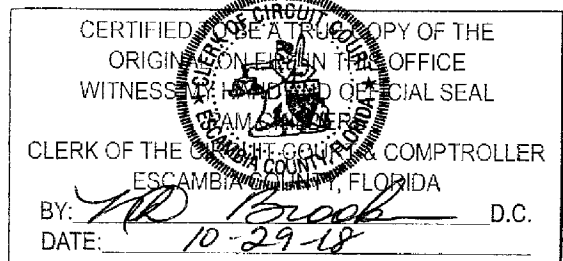 CERTIFIED TO BE A TRUE COPY OF THE
ORIGINAL ON FILE IN THIS OFFICE
WITNESS MY HAND AND OFFICIAL SEAL
PAM
CLERK OF THE CIRCUIT COURT & COMPTROLLER
ESCAMBIA COUNTY, FLORIDA
BY: Brook D.C.
DATE: 10-29-18
CLERK OF CIRCUIT COURT
★ ESCAMBIA COUNTY, FLORIDA ★